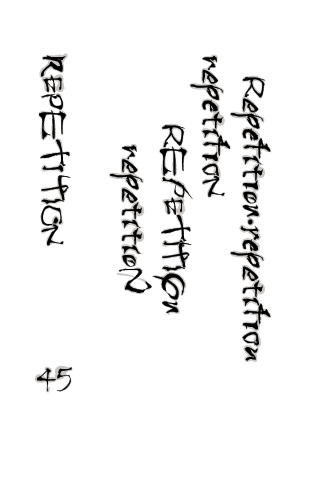 Repetition·repetition
repetitioN
REPETITIOn
repetitioN
REPETITION
45